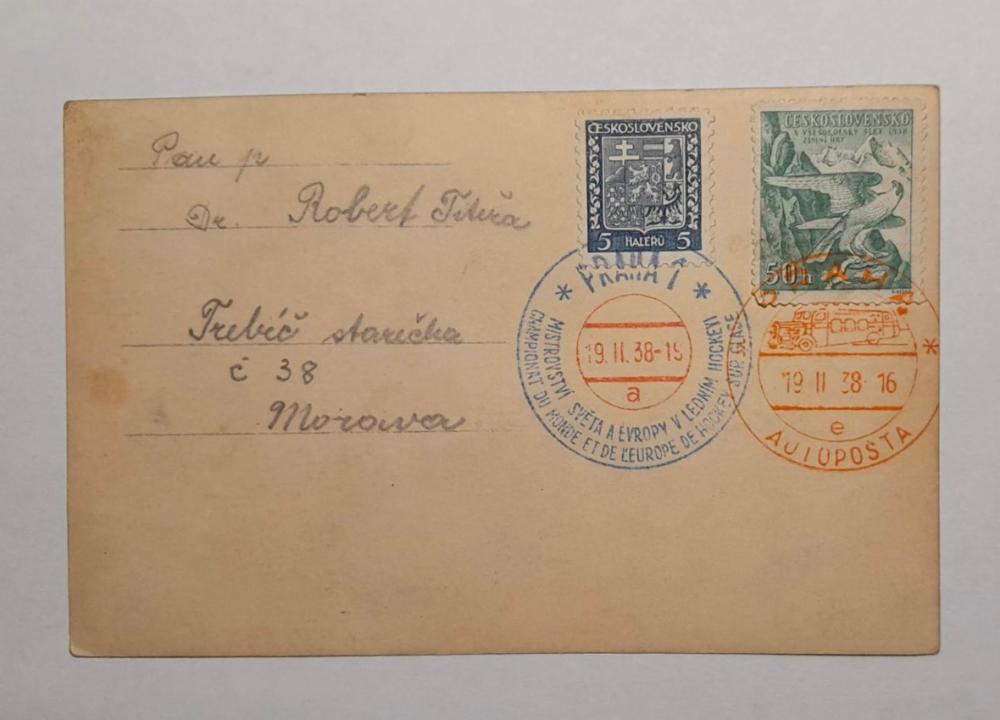 Pan p
Dr. Robert Titěra
Trebíč starečka
č 38
Morava
ČESKOSLOVENSKO
5 HALÉRŮ 5
ČESKOSLOVENSKO
X VŠESOKOLSKÝ SLET 1938
ZIMNÍ HRY
50h
PRAHA 7
MISTROVSTVÍ SVĚTA A EVROPY V LEDNÍM HOCKEYI
CHAMPIONAT DU MONDE ET DE L'EUROPE DE HOCKEY SUR GLACE
19. II. 38-15
a
PRAHA
19 II 38-16
e
AUTOPOŠTA